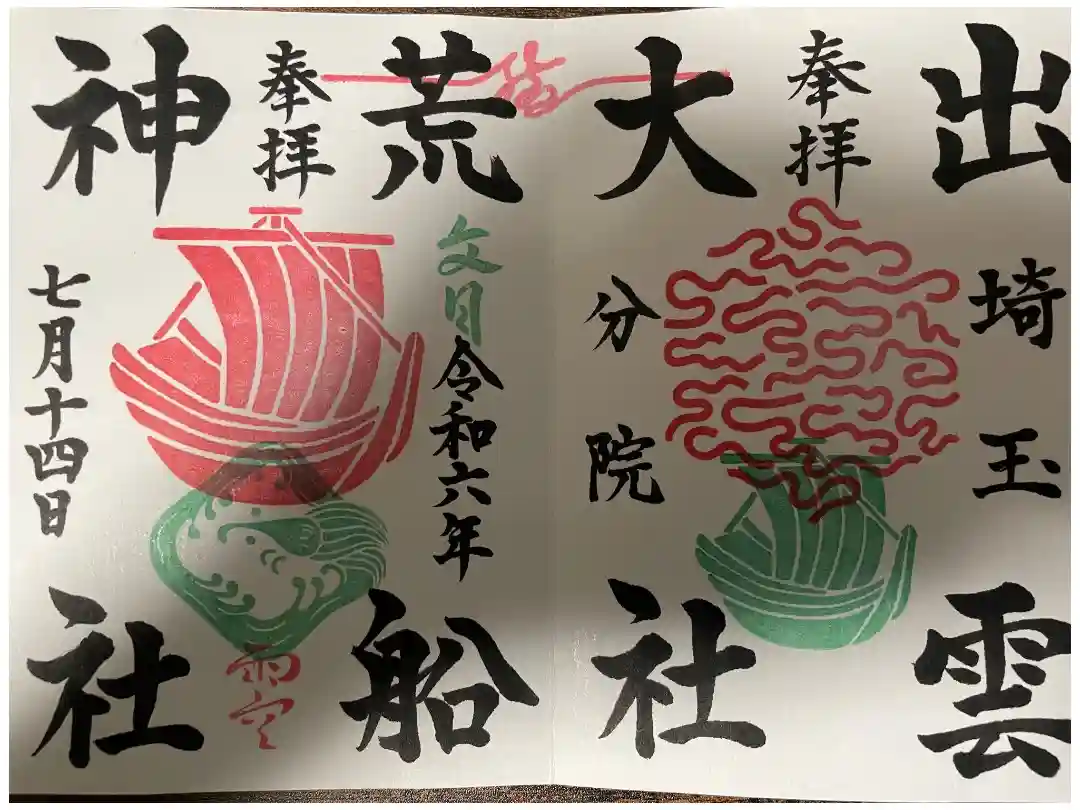 出雲
埼玉
奉拝
大社
分院
荒船
文月
令和六年
奉拝
雨空
神社
七月十四日